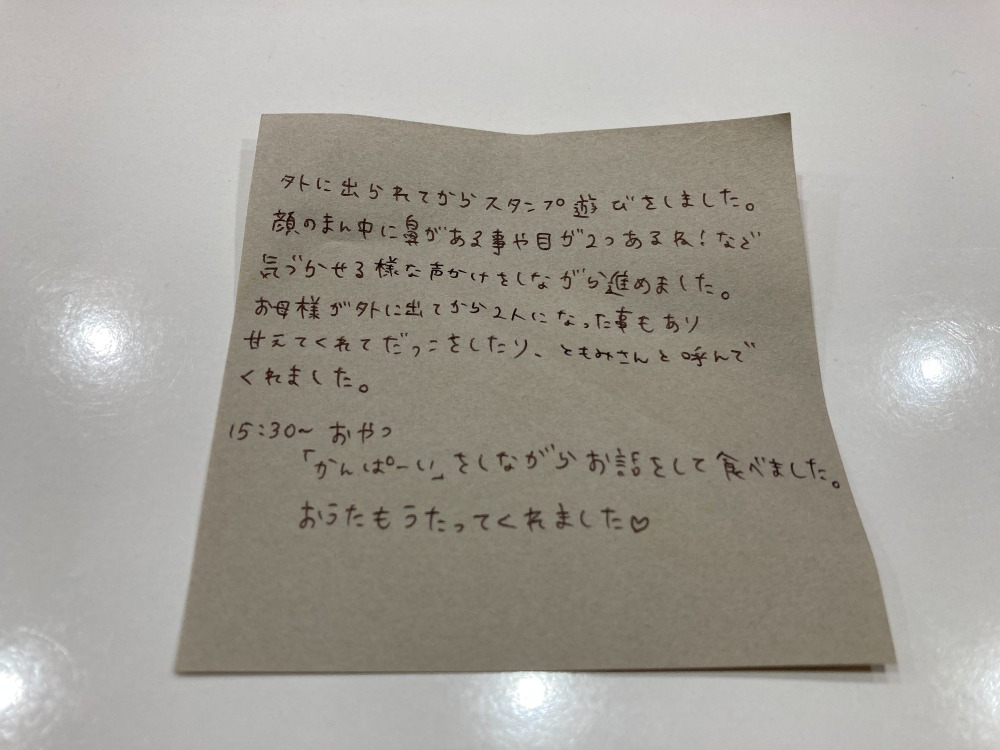 外に出られてからスタンプ遊びをしました。
顔のまん中に鼻がある事や目が2つあるね!など
気づかせる様な声かけをしながら進めました。
お母様が外に出てから2人になった事もあり
甘えてくれてだっこをしたり、ともみさんと呼んで
くれました。
15:30~ おやつ
「かんぱーい」をしながらお話をして食べました。
おうたもうたってくれました♡